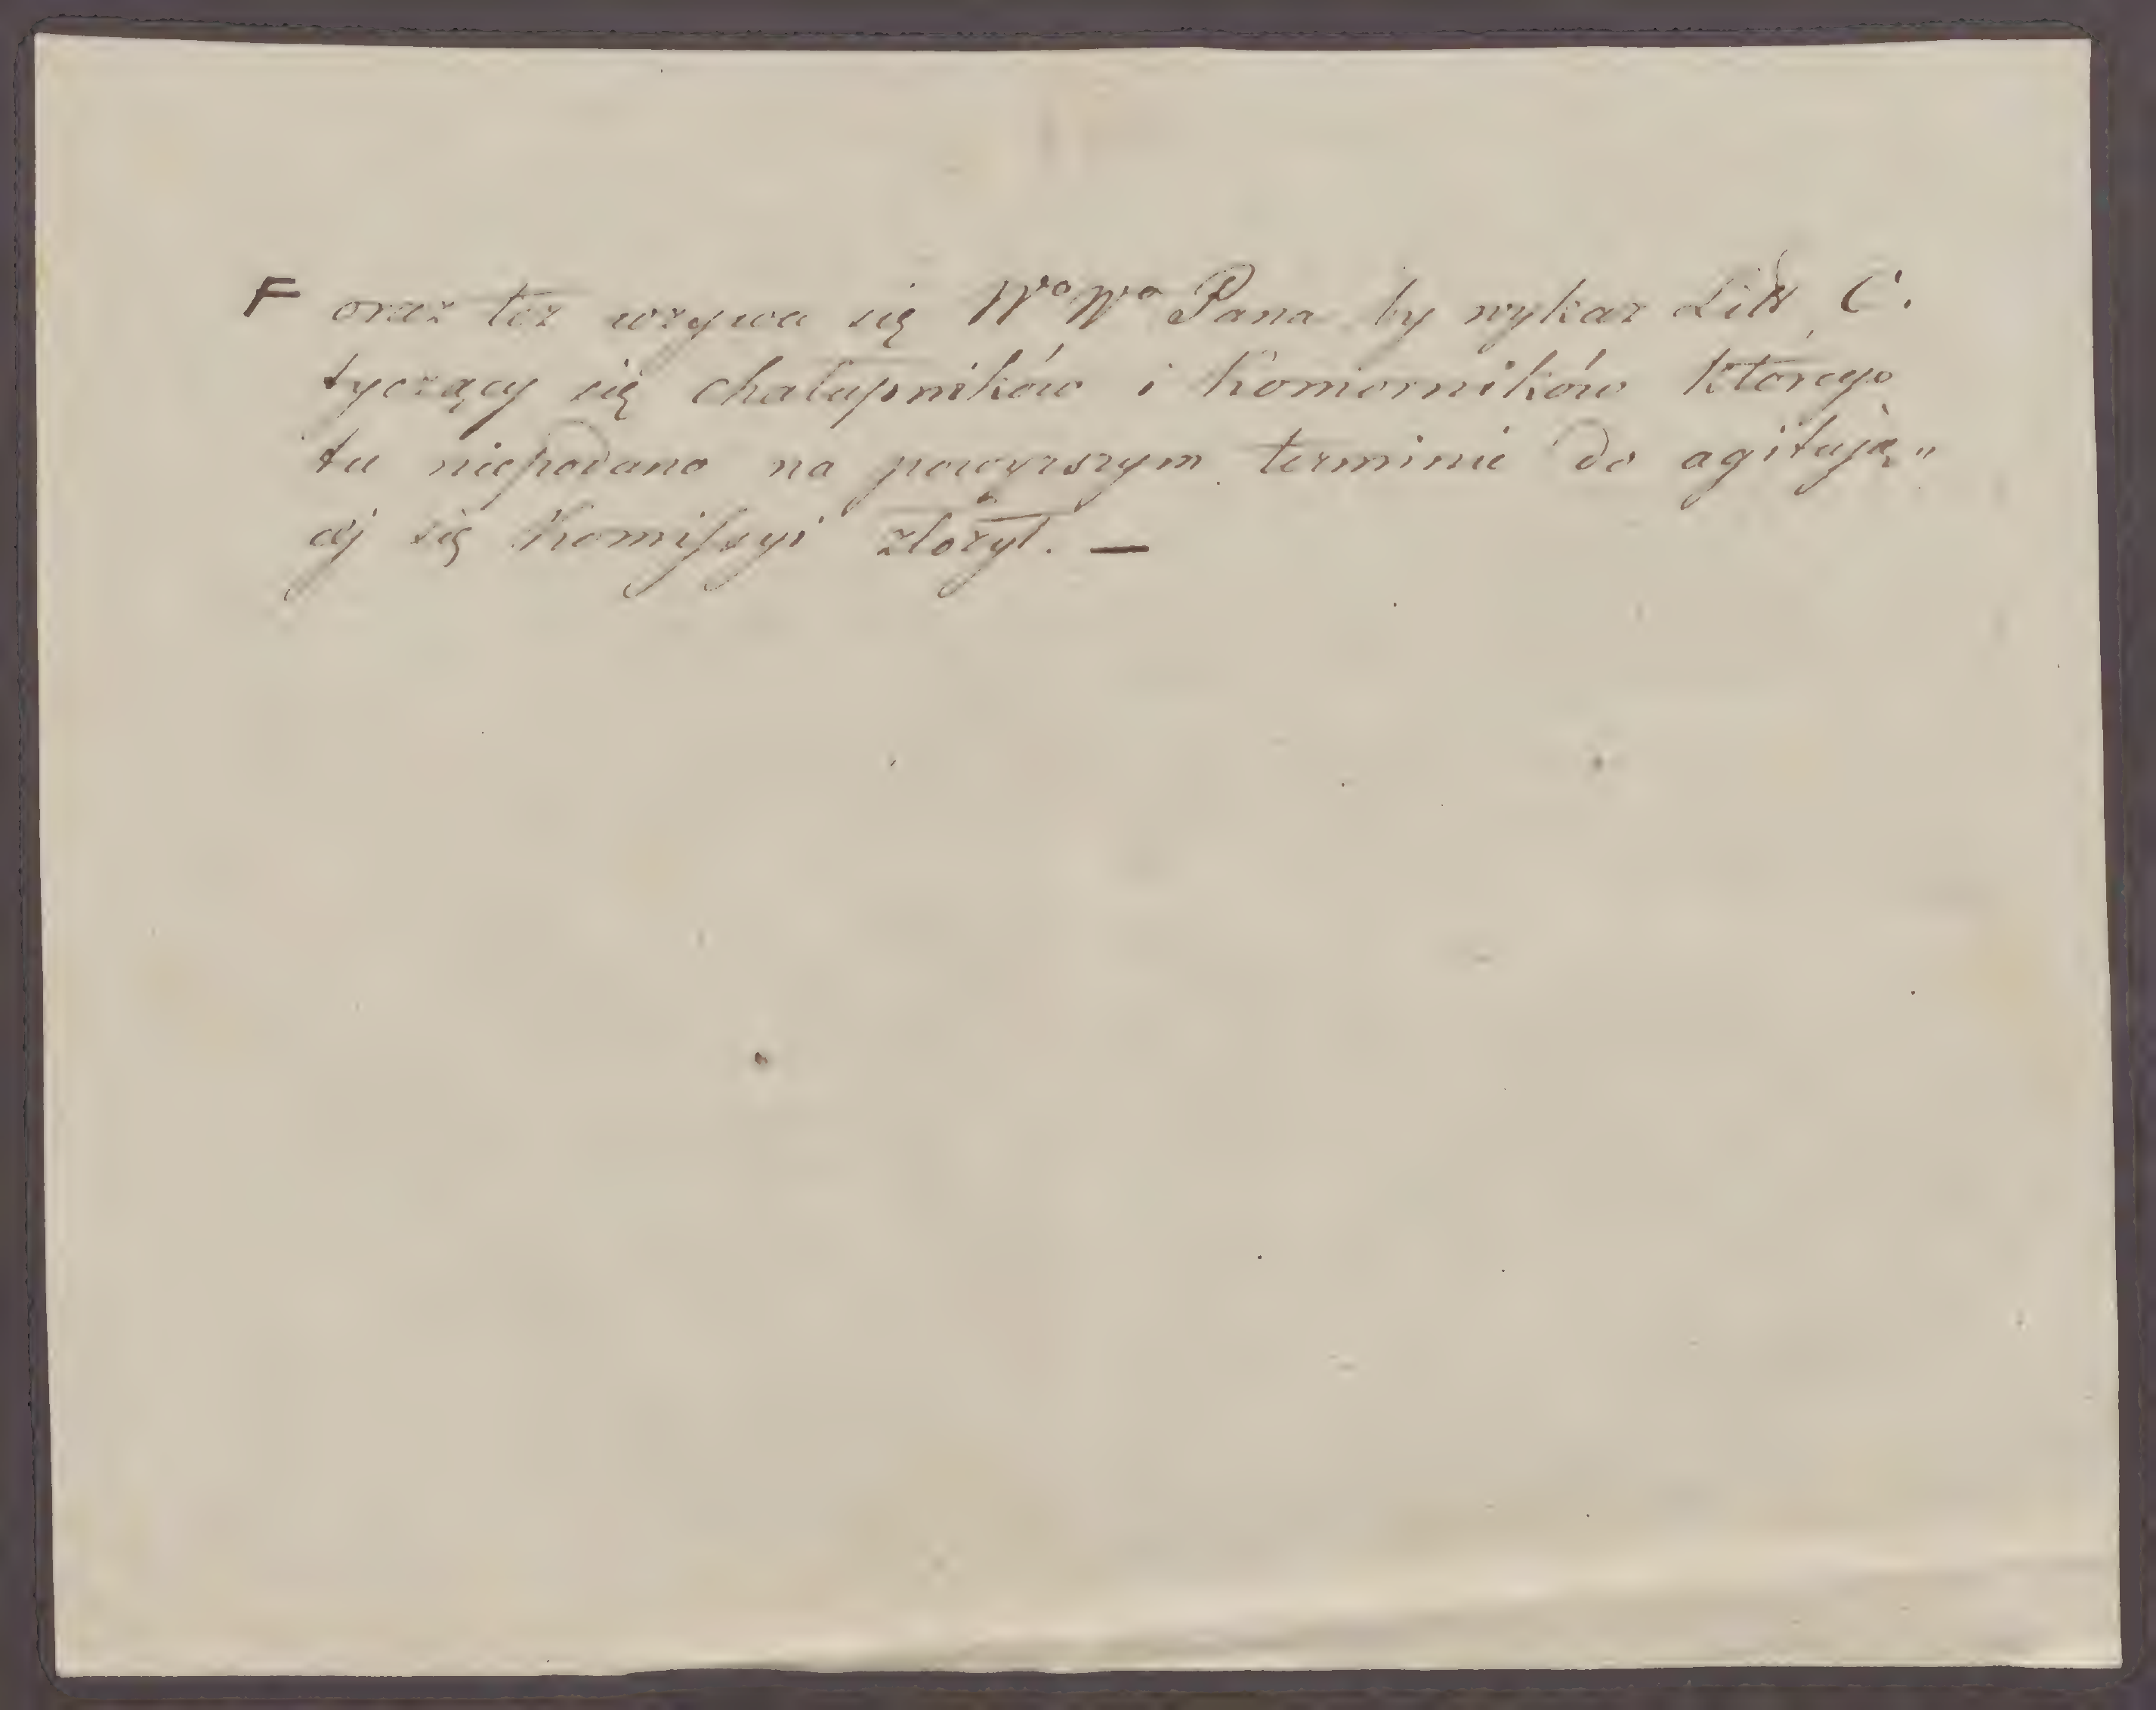 F oraz też wzywa się Wº Wº Pana by wykaz Litt. C.
tyczący się chałupników i komorników którego
tu niepodano na powyższym terminie do agitują„
céj się Komissyi złożył. —